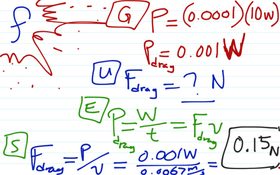 f G P=(0.0001)(10W)
P_drag=0.001W
U F_drag = ? N
E P_drag = W/t = F_drag v
S F_drag = P/v = 0.001W/0.0067m/s = 0.15N